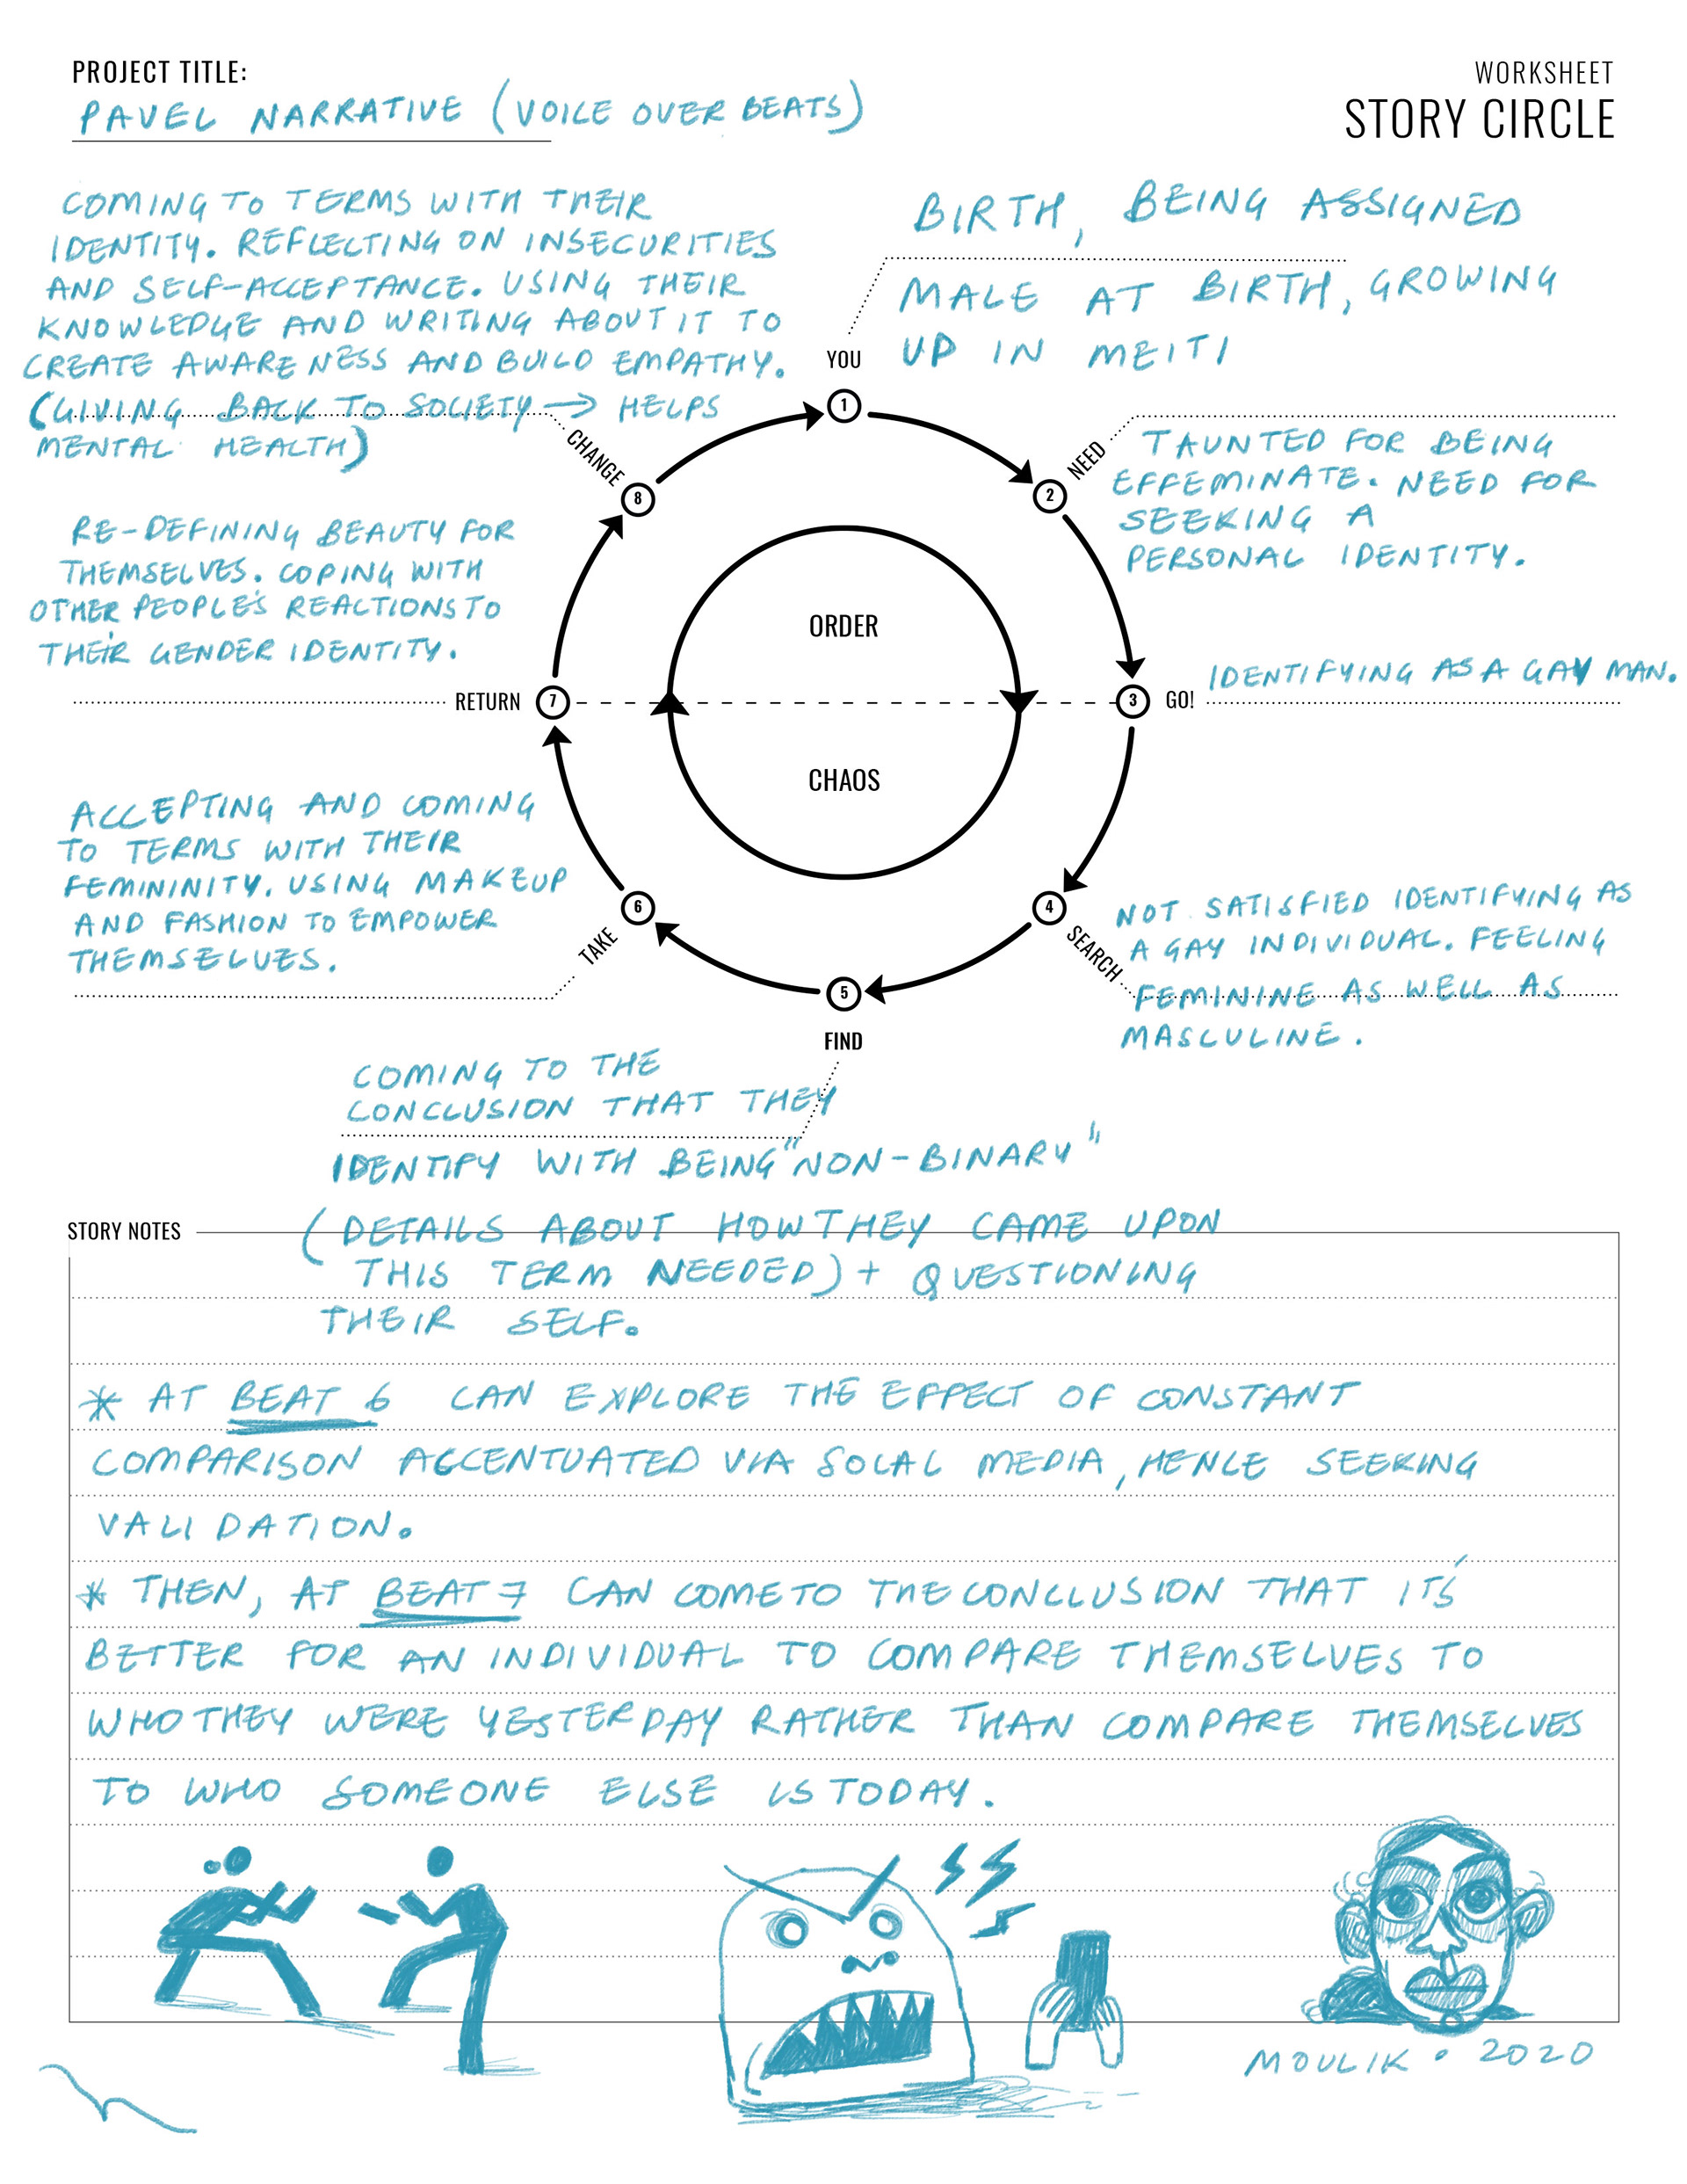 PROJECT TITLE:
PAVEL NARRATIVE (VOICE OVER BEATS)
WORKSHEET
STORY CIRCLE
BIRTH, BEING ASSIGNED
MALE AT BIRTH, GROWING
UP IN MEITI
YOU
1
NEED
2
TAUNTED FOR BEING
EFFEMINATE. NEED FOR
SEEKING A
PERSONAL IDENTITY.
GO!
3
IDENTIFYING AS A GAY MAN.
SEARCH
4
NOT SATISFIED IDENTIFYING AS
A GAY INDIVIDUAL. FEELING
FEMININE AS WELL AS
MASCULINE.
5
FIND
COMING TO THE
CONCLUSION THAT THEY
IDENTIFY WITH BEING "NON-BINARY"
(DETAILS ABOUT HOW THEY CAME UPON
THIS TERM NEEDED) + QUESTIONING
THEIR SELF.
6
TAKE
ACCEPTING AND COMING
TO TERMS WITH THEIR
FEMININITY. USING MAKEUP
AND FASHION TO EMPOWER
THEMSELVES.
RETURN
7
RE-DEFINING BEAUTY FOR
THEMSELVES. COPING WITH
OTHER PEOPLE'S REACTIONS TO
THEIR GENDER IDENTITY.
CHANGE
8
COMING TO TERMS WITH THEIR
IDENTITY. REFLECTING ON INSECURITIES
AND SELF-ACCEPTANCE. USING THEIR
KNOWLEDGE AND WRITING ABOUT IT TO
CREATE AWARENESS AND BUILD EMPATHY.
(GIVING BACK TO SOCIETY → HELPS
MENTAL HEALTH)
ORDER
CHAOS
STORY NOTES
* AT BEAT 6 CAN EXPLORE THE EFFECT OF CONSTANT
COMPARISON ACCENTUATED VIA SOCAL MEDIA, HENCE SEEKING
VALIDATION.
* THEN, AT BEAT 7 CAN COME TO THE CONCLUSION THAT IT'S
BETTER FOR AN INDIVIDUAL TO COMPARE THEMSELVES TO
WHO THEY WERE YESTERDAY RATHER THAN COMPARE THEMSELVES
TO WHO SOMEONE ELSE IS TODAY.
MOULIK • 2020